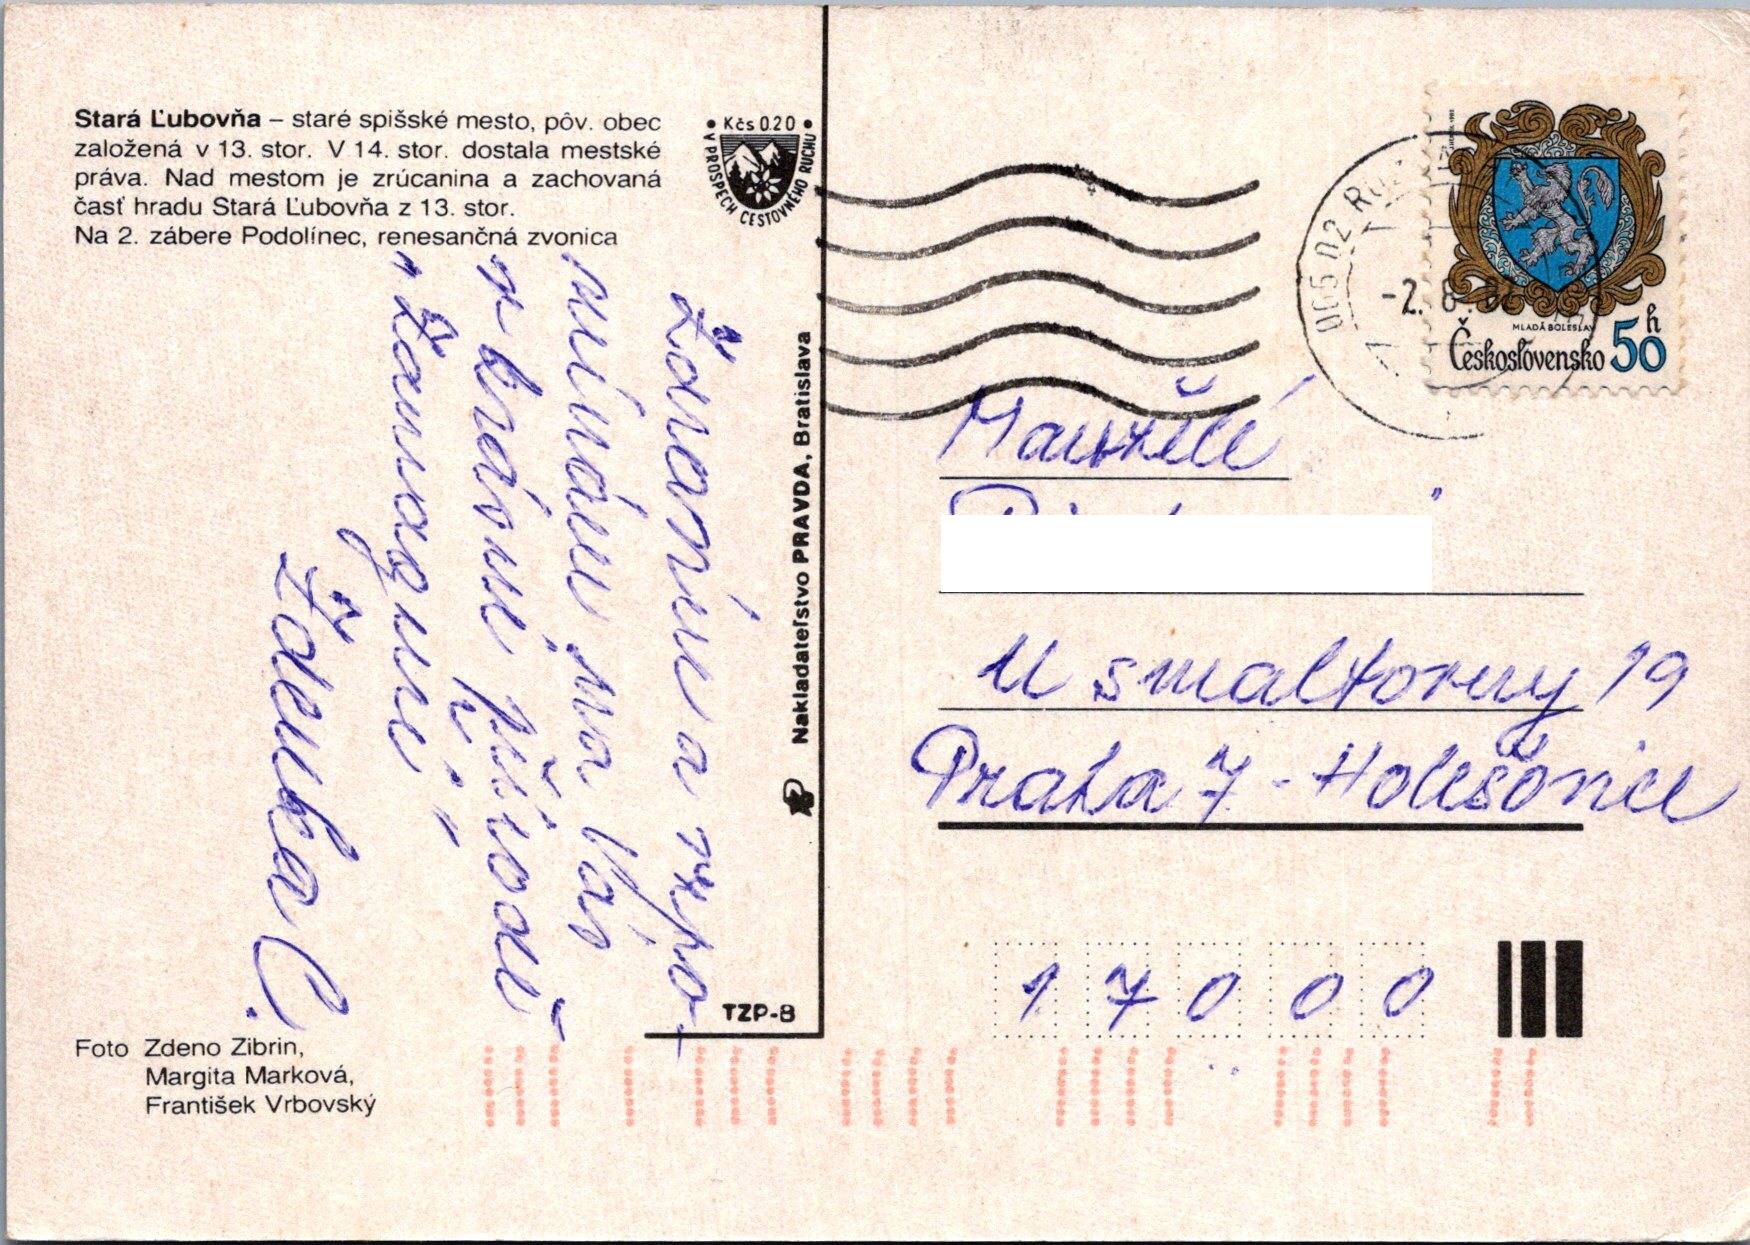 Stará Ľubovňa – staré spišské mesto, pôv. obec
založená v 13. stor. V 14. stor. dostala mestské
práva. Nad mestom je zrúcanina a zachovaná
časť hradu Stará Ľubovňa z 13. stor.
Na 2. zábere Podolínec, renesančná zvonica
• Kčs 0.20 •
V PROSPECH CESTOVNÉHO RUCHU
Zdravím a vzpo-
mínám na Vás
v krásné přírodě
Zamaguří,
Zdenka C.
Nakladateľstvo PRAVDA, Bratislava
TZP-8
Foto Zdeno Zibrin,
Margita Marková,
František Vrbovský
065 02
-2. 8.
MLADÁ BOLESLAV
Československo 50 h
Manželé
U smaltovny 19
Praha 7 - Holešovice
17000